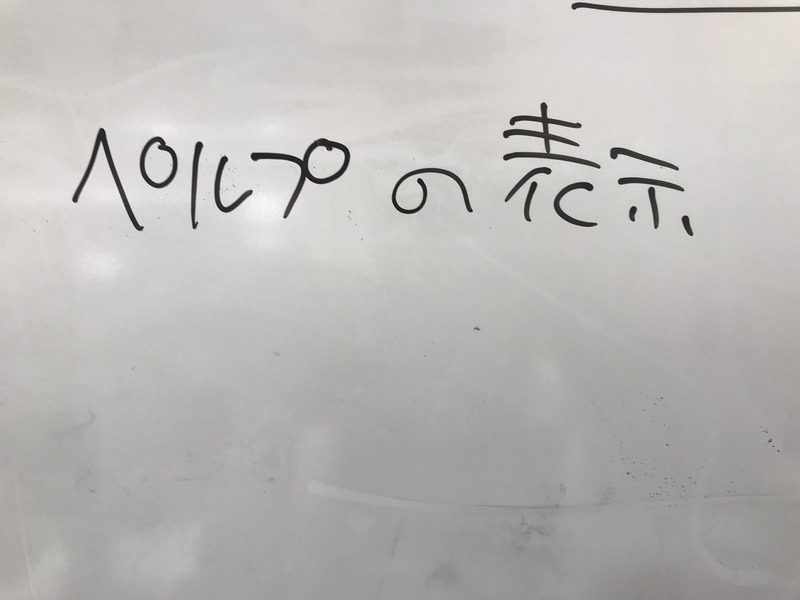 ペルプの表示